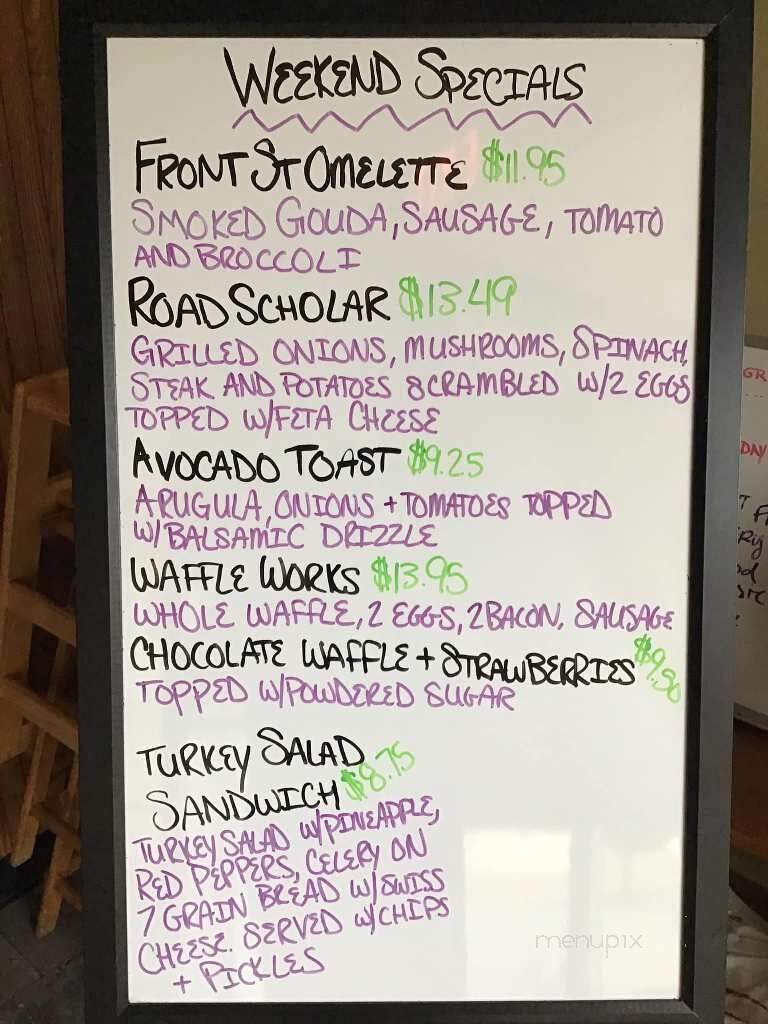 WEEKEND SPECIALS
FRONT ST OMELETTE $11.95
SMOKED GOUDA, SAUSAGE, TOMATO
AND BROCCOLI
ROAD SCHOLAR $13.49
GRILLED ONIONS, MUSHROOMS, SPINACH,
STEAK AND POTATOES SCRAMBLED W/2 EGGS
TOPPED W/FETA CHEESE
AVOCADO TOAST $9.25
ARUGULA, ONIONS + TOMATOES TOPPED
W/BALSAMIC DRIZZLE
WAFFLE WORKS $13.95
WHOLE WAFFLE, 2 EGGS, 2 BACON, SAUSAGE
CHOCOLATE WAFFLE + STRAWBERRIES $9.50
TOPPED W/POWDERED SUGAR
TURKEY SALAD
SANDWICH $8.75
TURKEY SALAD W/PINEAPPLE,
RED PEPPERS, CELERY ON
7 GRAIN BREAD W/SWISS
CHEESE. SERVED W/CHIPS
+ PICKLES
menupix
GR
DAY